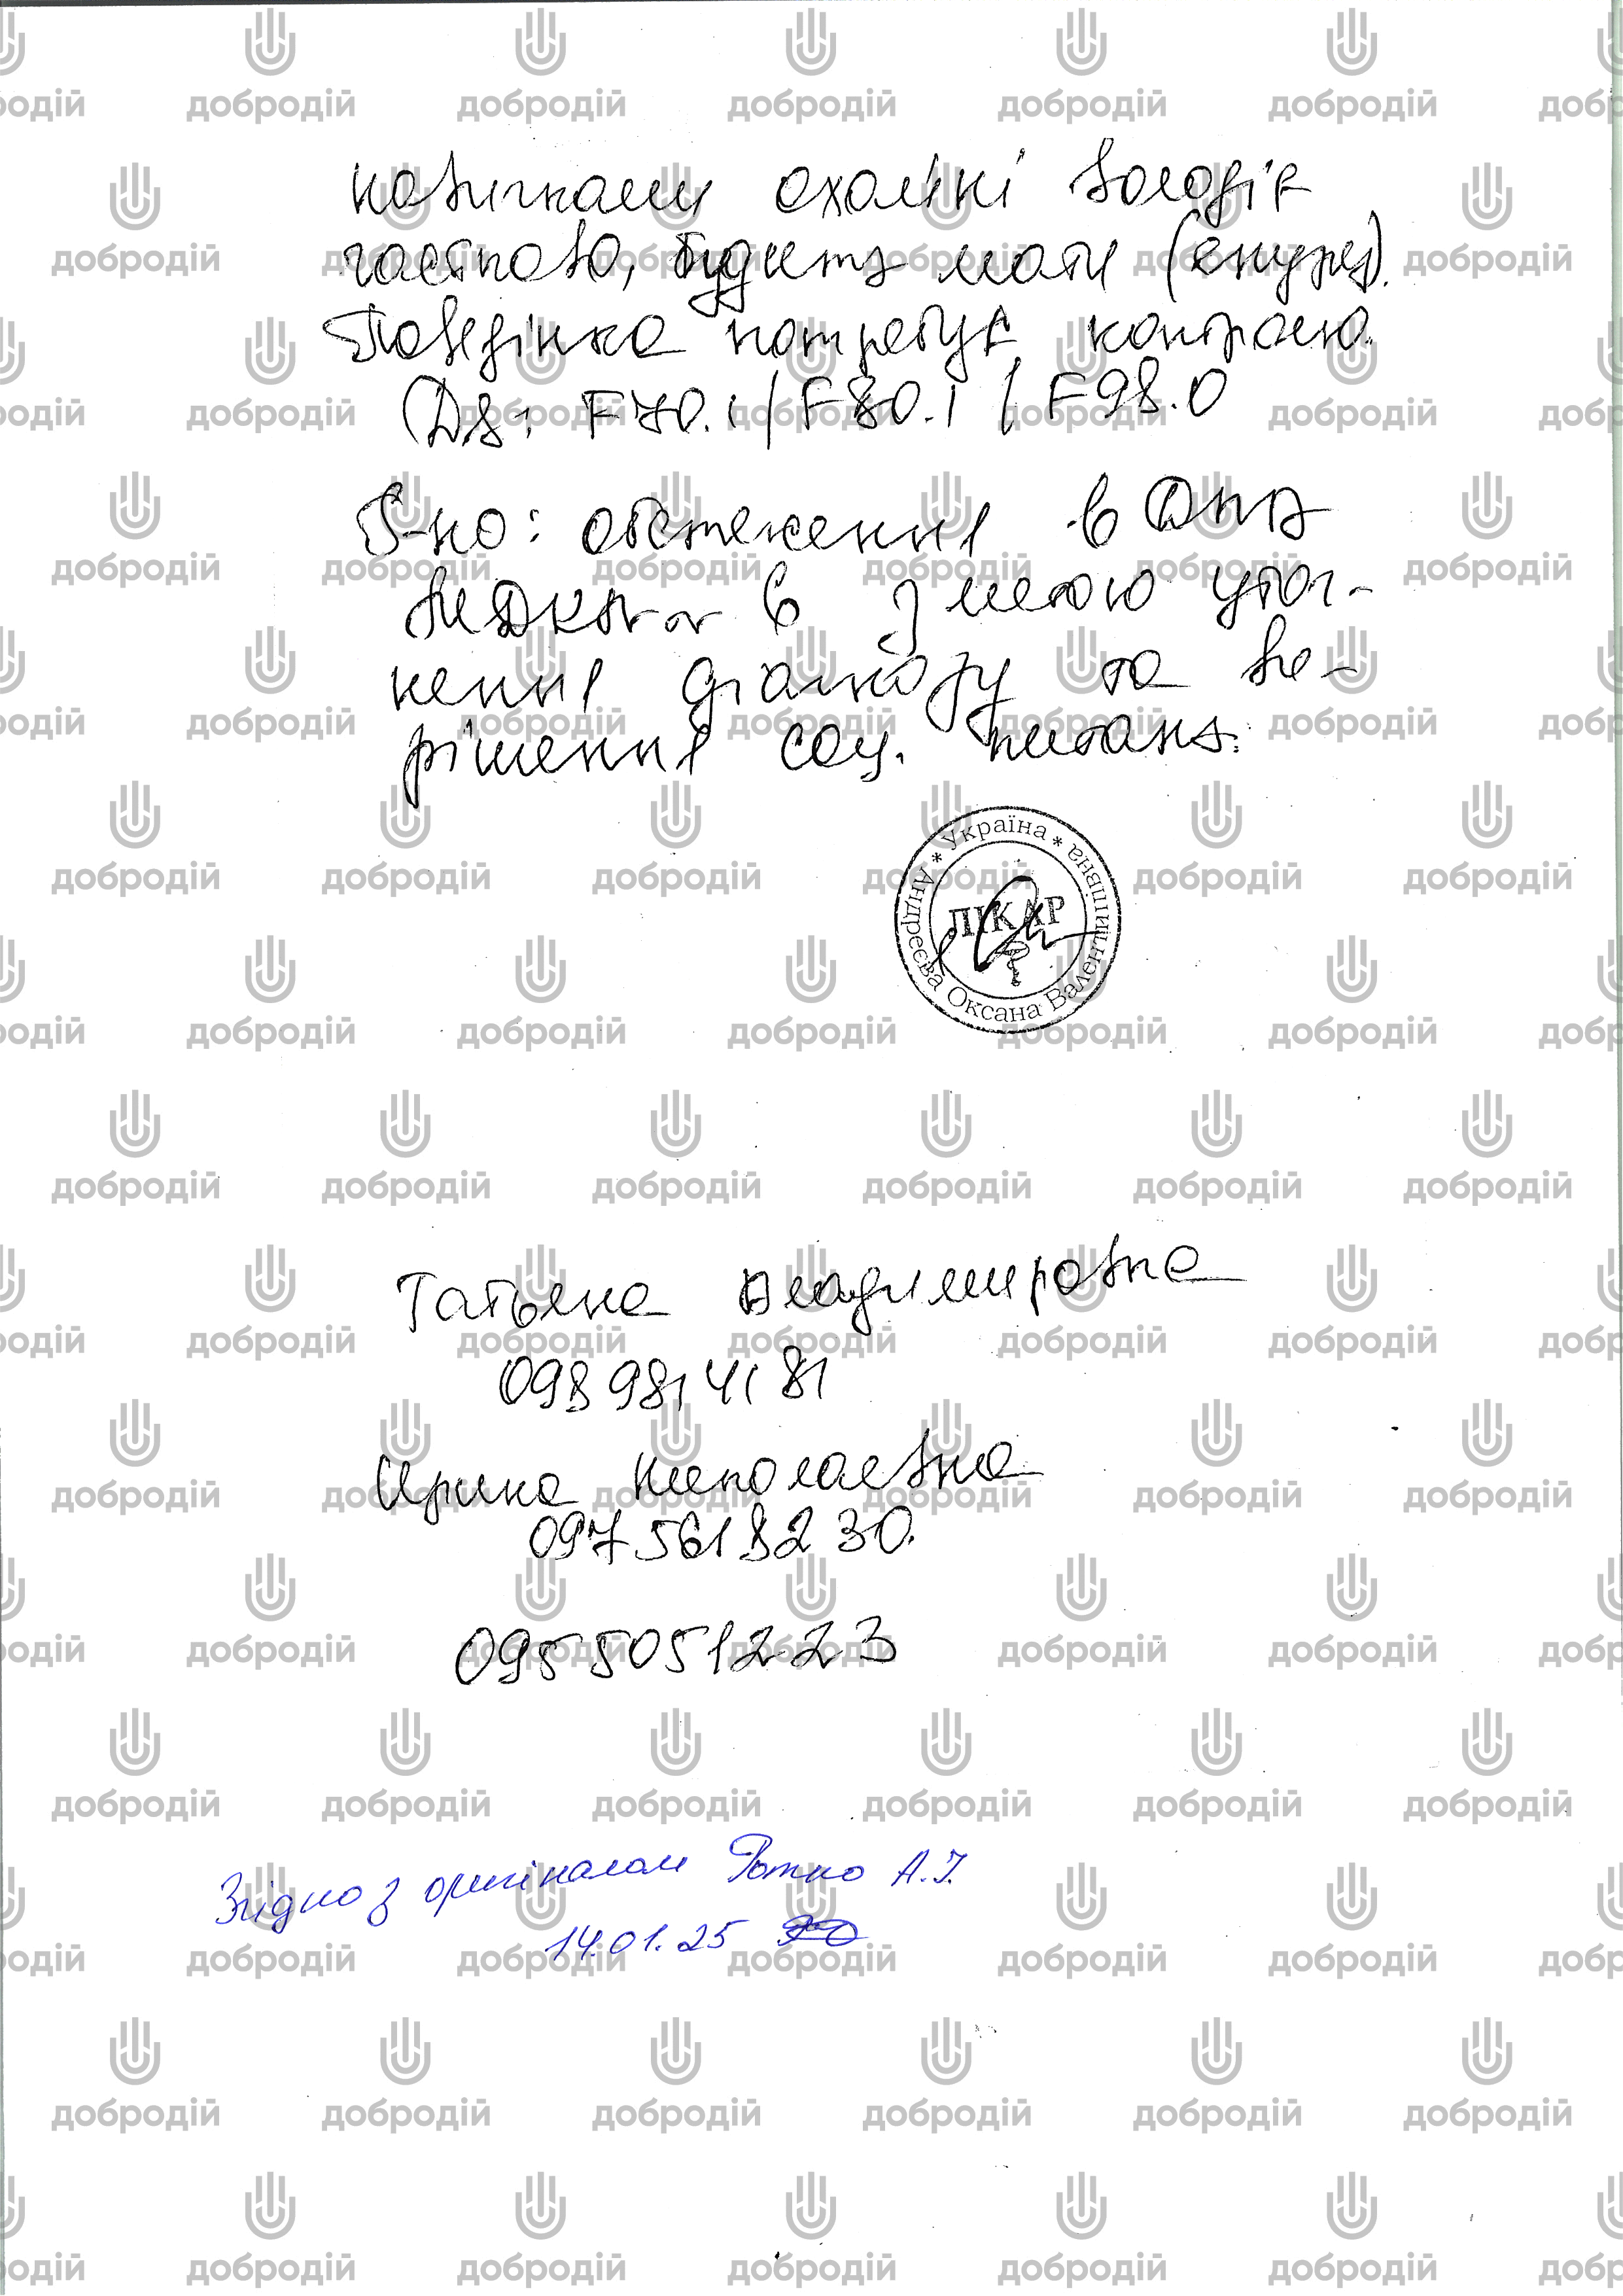 навичками охайнкі володіє
частково, будить мати (енурез).
Поведінка потребує контролю.
(Ds: F70.1/F80.1/F98.0
Р-но: обстеження в
з метою уточ-
нення діагнозу та ви-
рішення соц. питань.
* Україна * Андреєва Оксана Валентинівна
ЛІКАР
Татьяна Владимировна
098 981 41 81
Ирина Николаевна
097 561 82 30.
095 505 12 23
Згідно з оригіналом А.І.
14.01.25
добродій